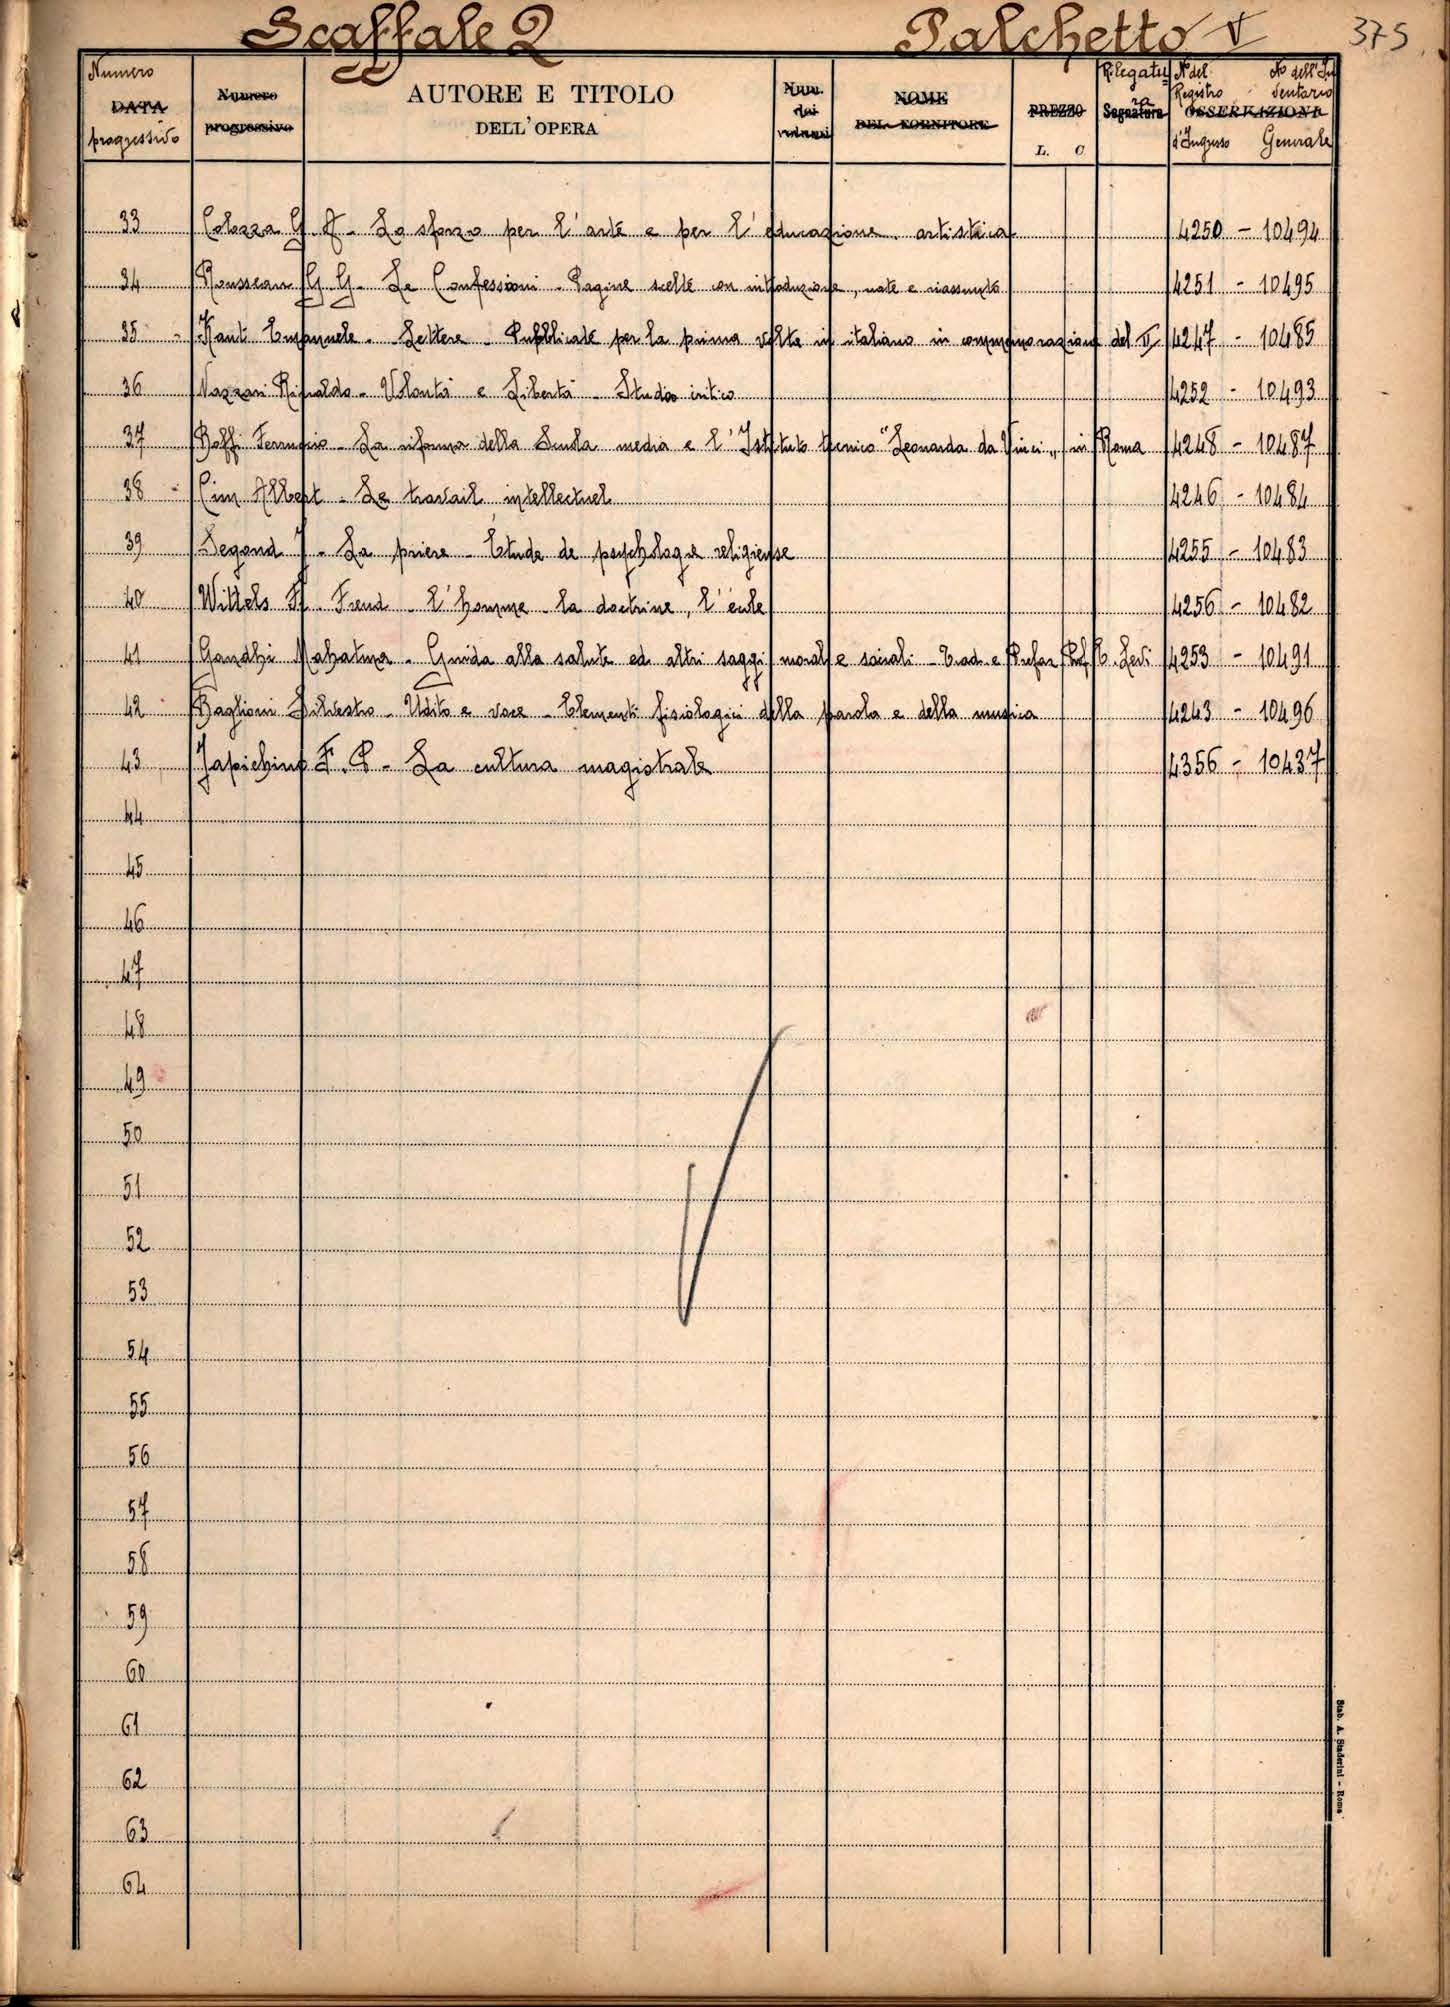 Scaffale 2 Palchetto V 375
Numero DATA progressivo
Numero progressivo
AUTORE E TITOLO
DELL'OPERA
Num. dei volumi
NOME
DEL FORNITORE
PREZZO
L. C
Rilegatura Segnatura
N° del Registro d'Ingresso
N° dell'Inventario Generale
OSSERVAZIONI
33 Colozza G. A. - Lo sforzo per l'arte e per l'educazione artistica 4250 - 10494
34 Rousseau G. G. Le Confessioni - Pagine scelte con introduzione, note e riassunto 4251 - 10495
35 - Kant Emanuele - Lettere - Pubblicate per la prima volta in italiano in commemorazione del II 4247 - 10485
36 Nazzari Rinaldo - Volontà e Libertà - Studio critico 4252 - 10493
37 Boffi Ferruccio - La riforma della Scuola media e l'Istituto tecnico "Leonardo da Vinci" in Roma 4248 - 10487
38 - Cim Albert - Le travail intellectuel 4246 - 10484
39 Segond J - La priere - Etude de psychologie religieuse 4255 - 10483
40 Wittels F. - Freud - l'homme - la doctrine, l'école 4256 - 10482
41 Gandhi Mahatma - Guida alla salute ed altri saggi morali e sociali - Trad. e Prefaz. Prof. E. Levi 4253 - 10491
42 Baglioni Silvestro - Udito e voce - Elementi fisiologici della parola e della musica 4243 - 10496
43 Japichino F. P - La cultura magistrale 4356 - 10437
44
45
46
47
48
49
50
51
52
53
54
55
56
57
58
59
60
61
62
63
64
Stab. A. Staderini - Roma